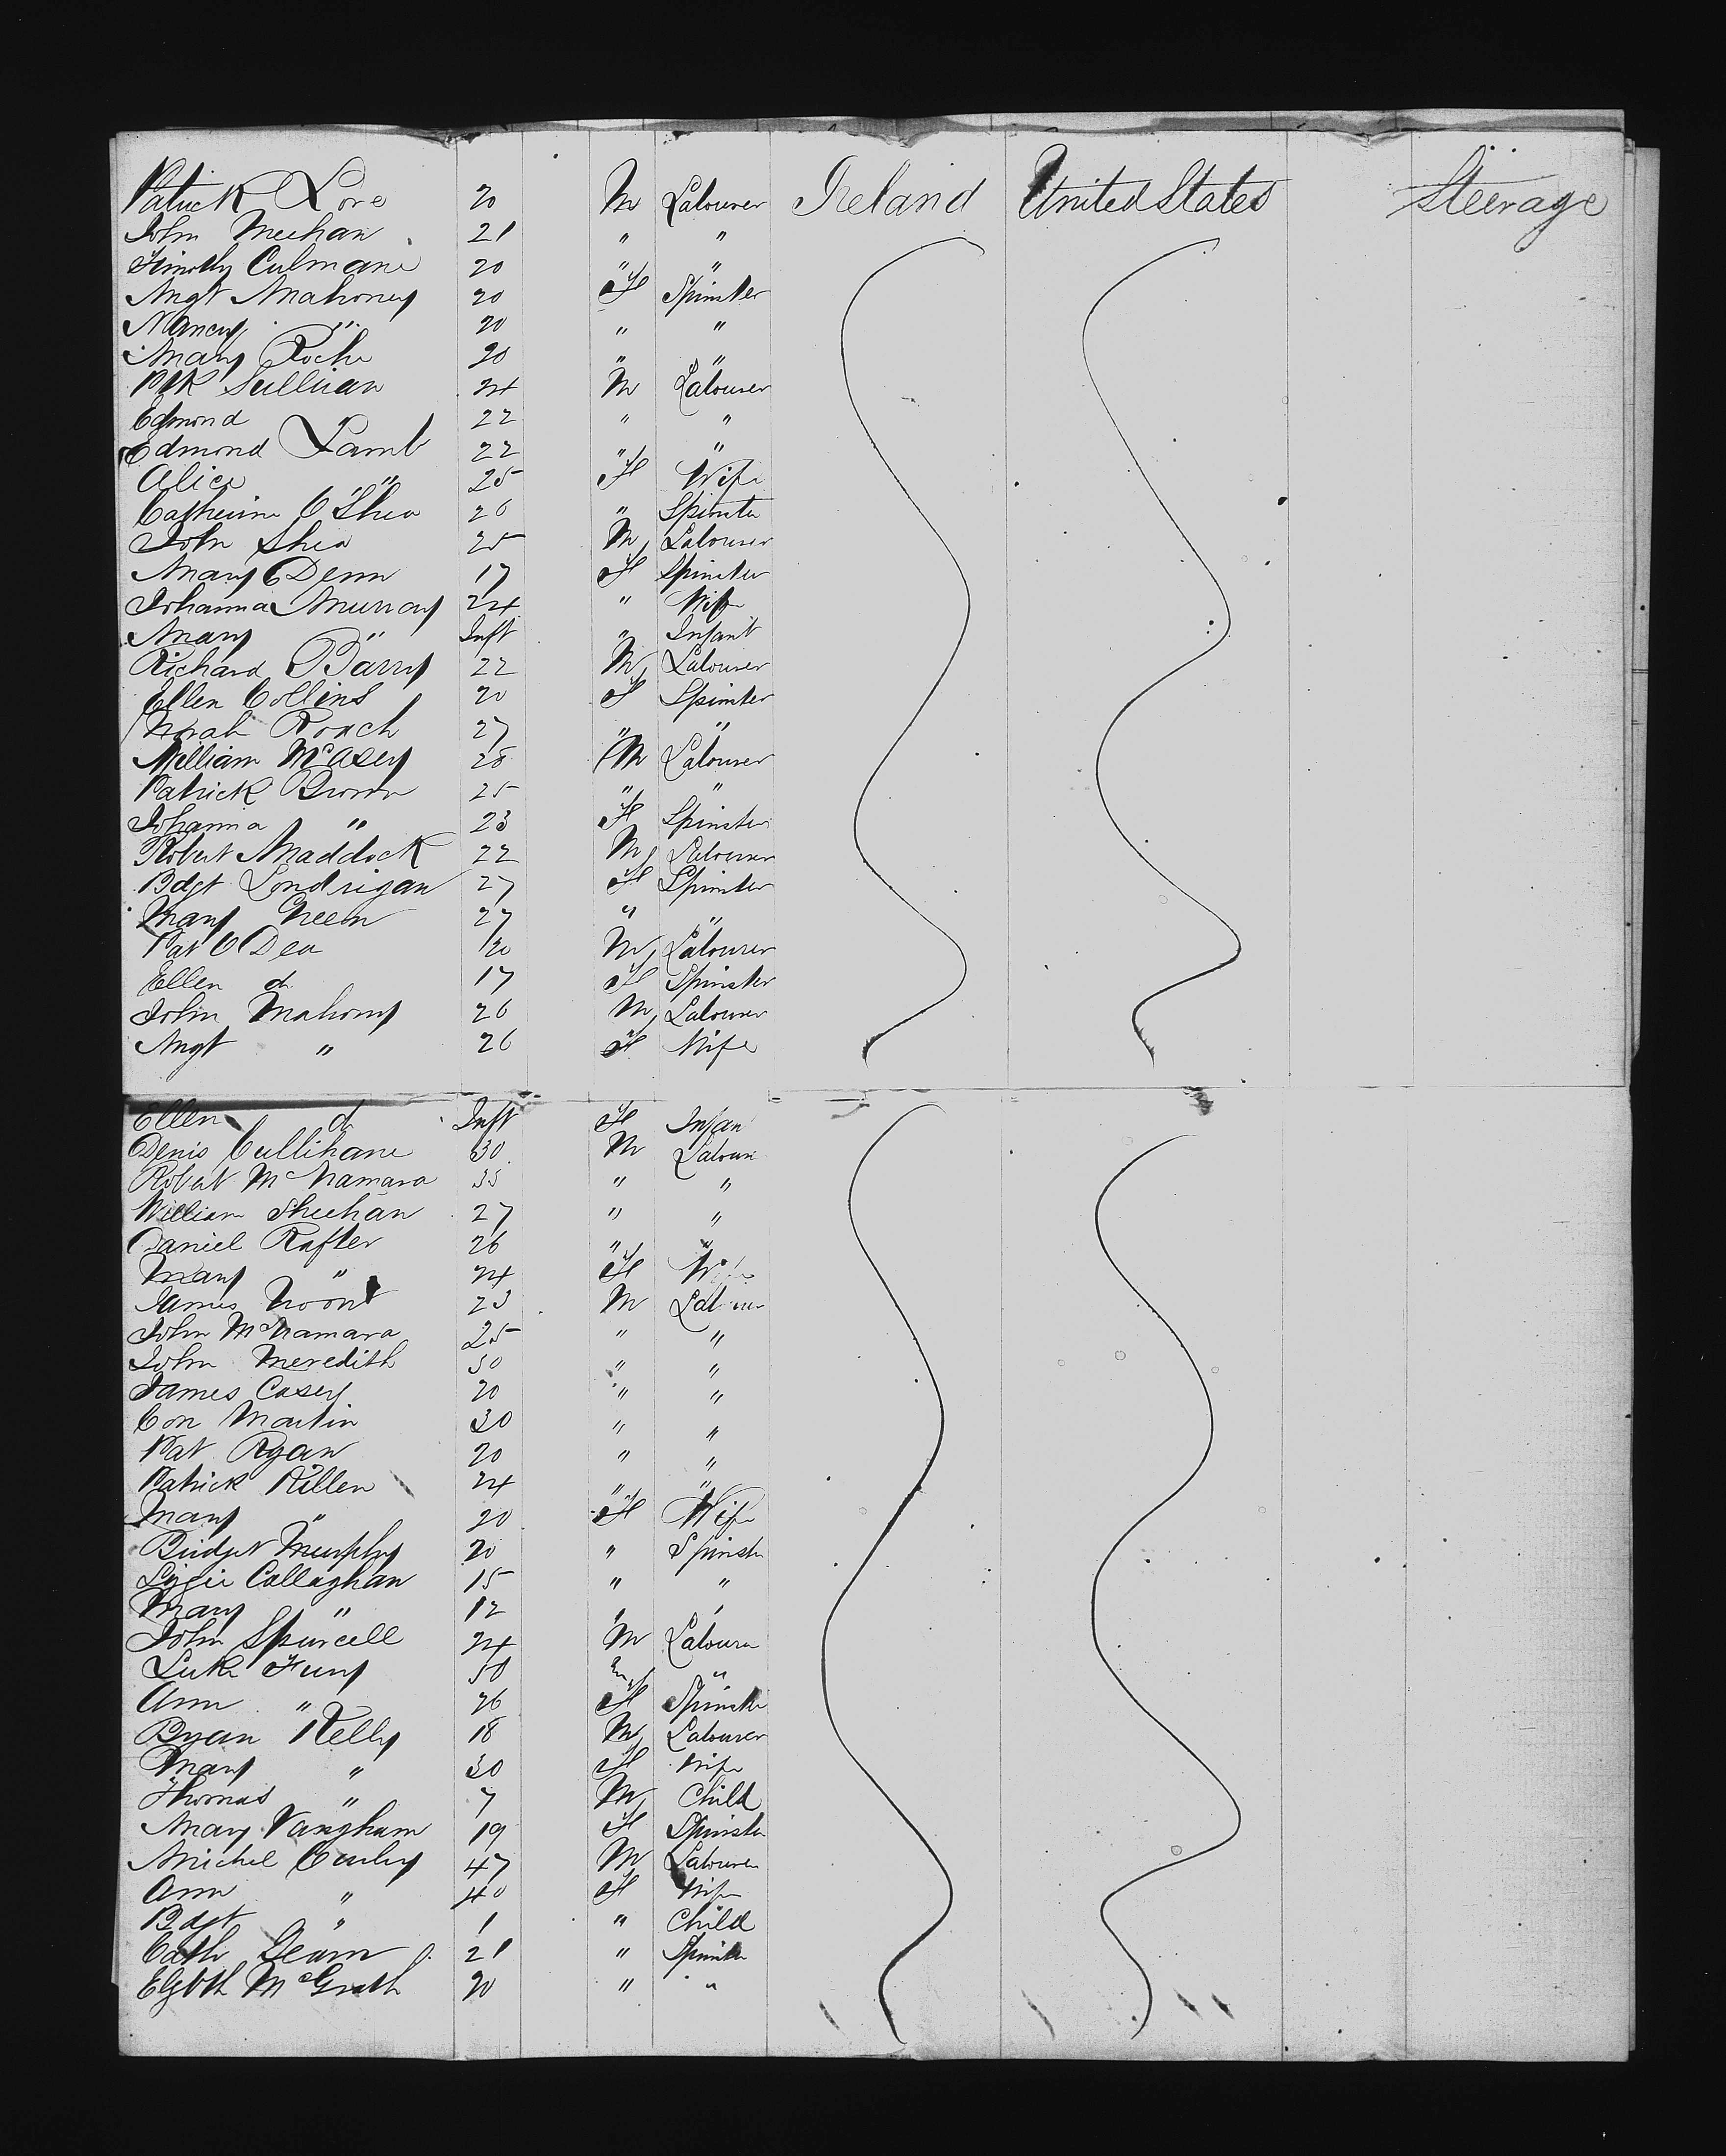 Patrick Lore 20 M Labourer Ireland United States Steerage
John Meehan 21 " "
Timothy Culmane 20 " "
Mgt Mahoney 20 F Spinster
Nancy " 20 " "
Mary Roche 20 " "
Ptk Sullivan 24 M Labourer
Edmond 22 " "
Edmond Lamb 22 " "
Alice " 25 F Wife
Catherine O'Shea 26 " Spinster
John Shea 25 M Labourer
Mary Denn 17 F Spinster
Johanna Murray 24 " Wife
Mary " Inft " Infant
Richard Barry 22 M Labourer
Ellen Collins 20 F Spinster
Norah Roach 27 " "
William McAsey 28 M Labourer
Patrick Brown 25 " "
Johanna " 23 F Spinster
Robert Maddock 22 M Labourer
Bdgt Londrigan 27 F Spinster
Mary Neem 27 " "
Pat O Dea 20 M Labourer
Ellen do 17 F Spinster
John Mahony 26 M Labourer
Mgt " 26 F Wife
Ellen do Inft F Infan
Denis Cullihane 30 M Labour
Robert McNamara 35 " "
William Sheehan 27 " "
Daniel Rafter 26 " "
Mary " 24 F Wife
James 23 M Labourer
John McNamara 25 " "
John Meredith 30 " "
James Casey 20 " "
Con Martin 30 " "
Pat Ryan 20 " "
Patrick Killen 24 " "
Mary " 20 F Wife
Bridget Murphy 20 " Spinster
Lizzie Callaghan 15 " "
Mary " 12 " "
John Spurcell 24 M Labourer
Luke 50 M "
Ann " 26 F Spinster
Bryan Kelly 18 M Labourer
Mary " 30 F Wife
Thomas " 7 M Child
Mary Vaugham 19 F Spinster
Michel 47 M Labourer
Ann " 40 F Wife
Bdgt " 1 " Child
Cath 21 " Spinster
Elzbth McGrath 20 " "